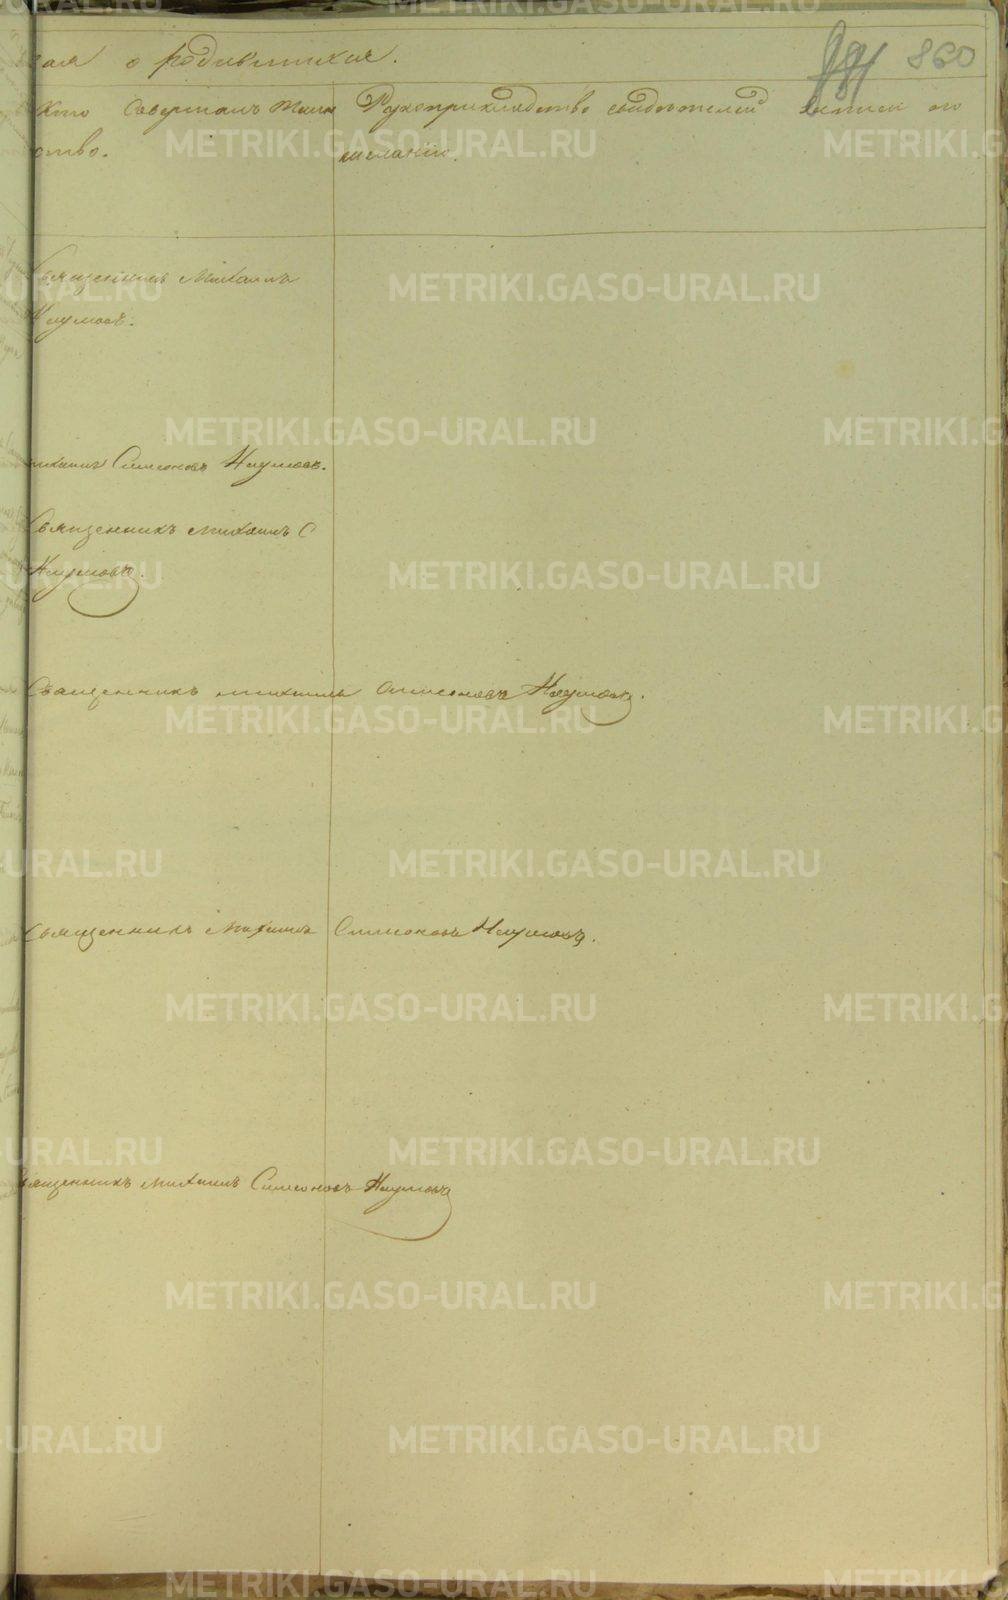 о родившихся. 860
Кто совершалъ Таин Рукоприкладство свидѣтелей записи по
ство. желанію.
Священникъ Михаилъ
Наумовъ.
Михаилъ Симеоновъ Наумовъ.
Священникъ Михаилъ С
Наумовъ.
Священникъ Михаилъ Симеоновъ Наумовъ.
Священникъ Михаилъ Симеоновъ Наумовъ.
Священникъ Михаилъ Симеоновъ Наумовъ
METRIKI.GASO-URAL.RU